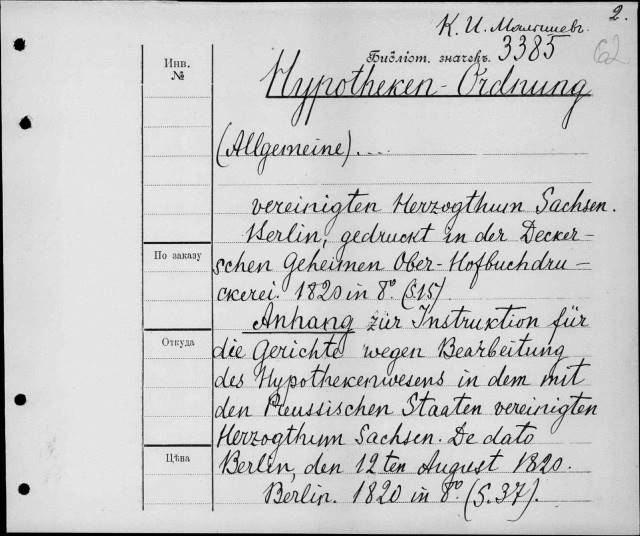 2.
К. И. Малышевъ.
Библіот. значекъ. 3385
62
Инв.
№
Hypotheken-Ordnung
(Allgemeine)....
vereinigten Herzogthum Sachsen.
Berlin, gedruckt in der Decker-
По заказу
schen Geheimen Ober-Hofbuchdru-
ckerei. 1820 in 8º. (S.15).
Anhang zur Instruktion für
Откуда
die Gerichte wegen Bearbeitung
des Hypothekenwesens in dem mit
den Preussischen Staaten vereinigten
Herzogthum Sachsen. De dato
Цѣна
Berlin, den 12ten August 1820.
Berlin. 1820 in 8º. (S.37).